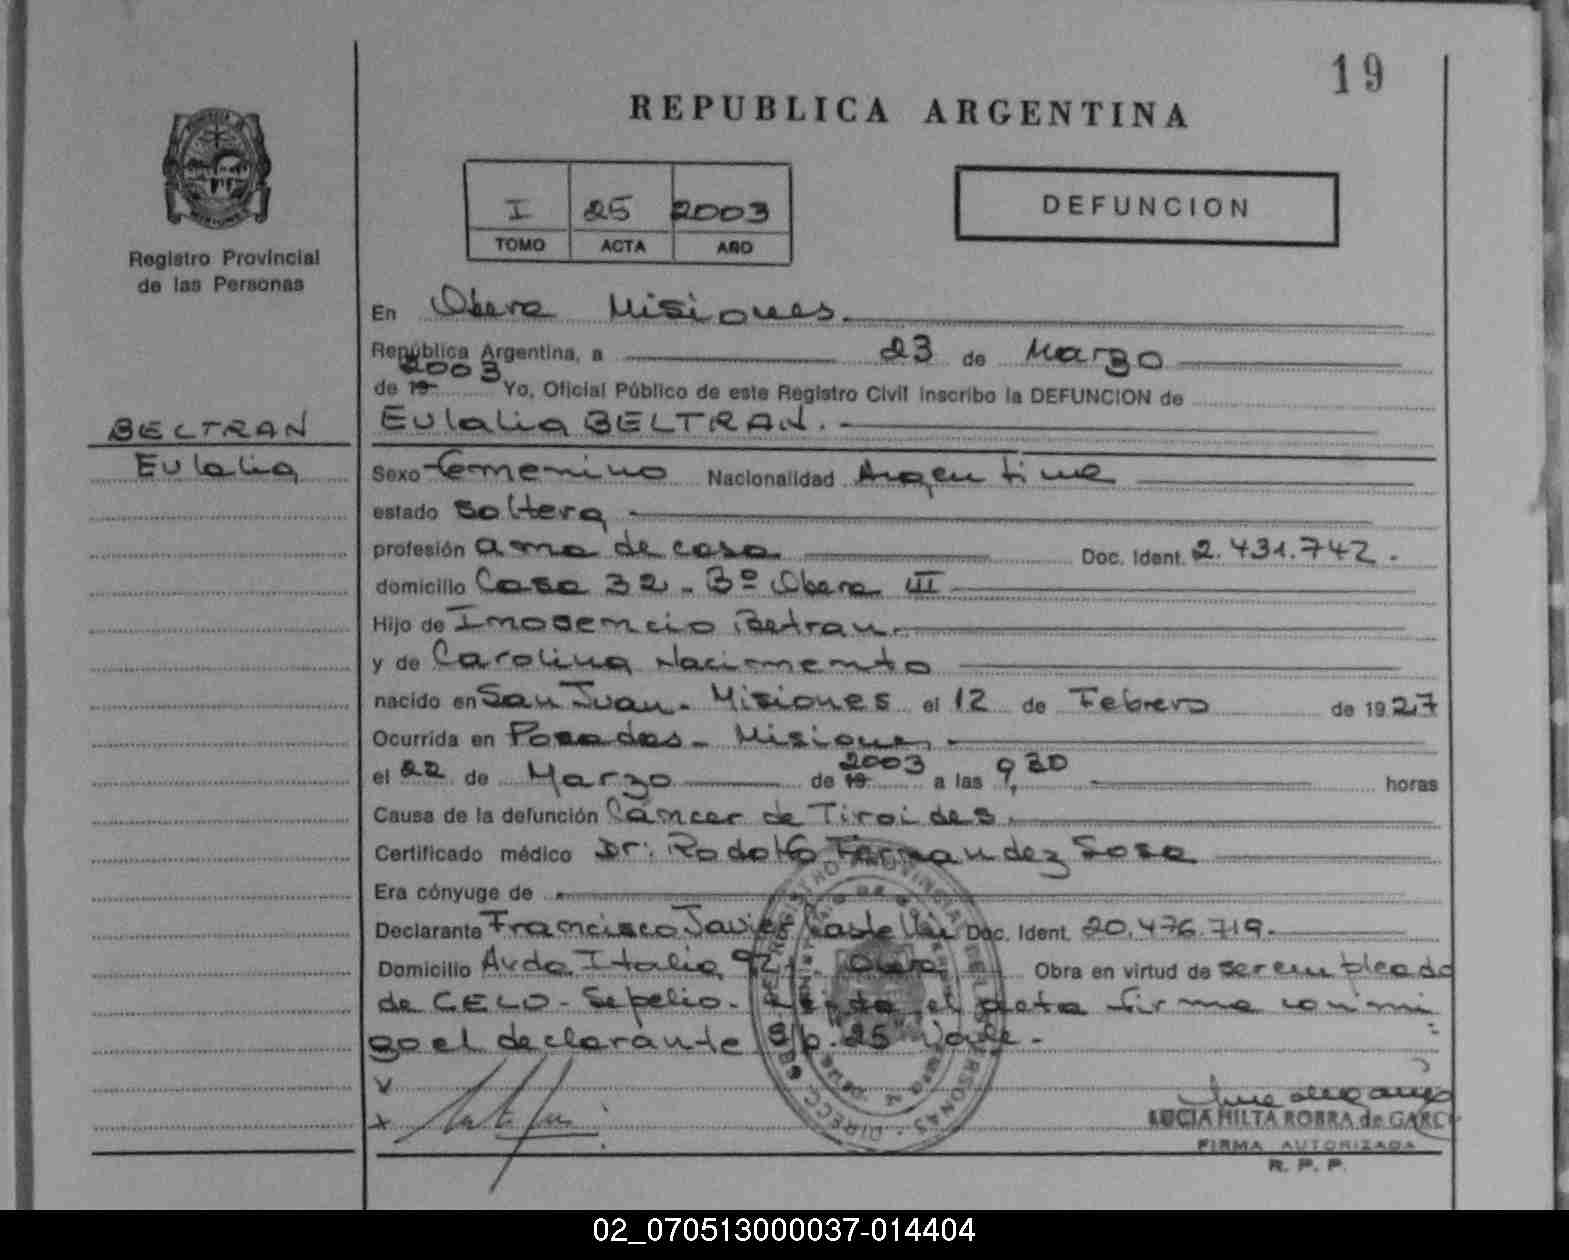 19
REPUBLICA ARGENTINA
I 25 2003
TOMO ACTA AÑO
DEFUNCION
Registro Provincial
de las Personas
En Obera Misiones.
República Argentina, a 23 de Marzo
2003
de 19 Yo, Oficial Público de este Registro Civil inscribo la DEFUNCION de
BELTRAN
Eulalia BELTRAN.
Eulalia
Sexo femenino Nacionalidad Argentina
estado soltera
profesión ama de casa Doc. Ident. 2.431.742.
domicilio Casa 32 - Bº Obera III
Hijo de Inosencio Beltran.
y de Carolina Nacimento
nacido en San Juan - Misiones el 12 de Febrero de 1927
Ocurrida en Posadas - Misiones
el 22 de Marzo de 19 2003 a las 9,30 horas
Causa de la defunción Cáncer de Tiroides.
Certificado médico Dr: Rodolfo Fernandez Sosa
Era cónyuge de
Declarante Francisco Javier Doc. Ident. 20.476.719.
Domicilio Avda Italia Obera Obra en virtud de ser empleado
de CELO - Sepelio. el acta firma conmi
go el declarante. 25 Vale.
LUCIA HILTA ROBRA de GARC
FIRMA AUTORIZADA
R. P. P.
02_070513000037-014404